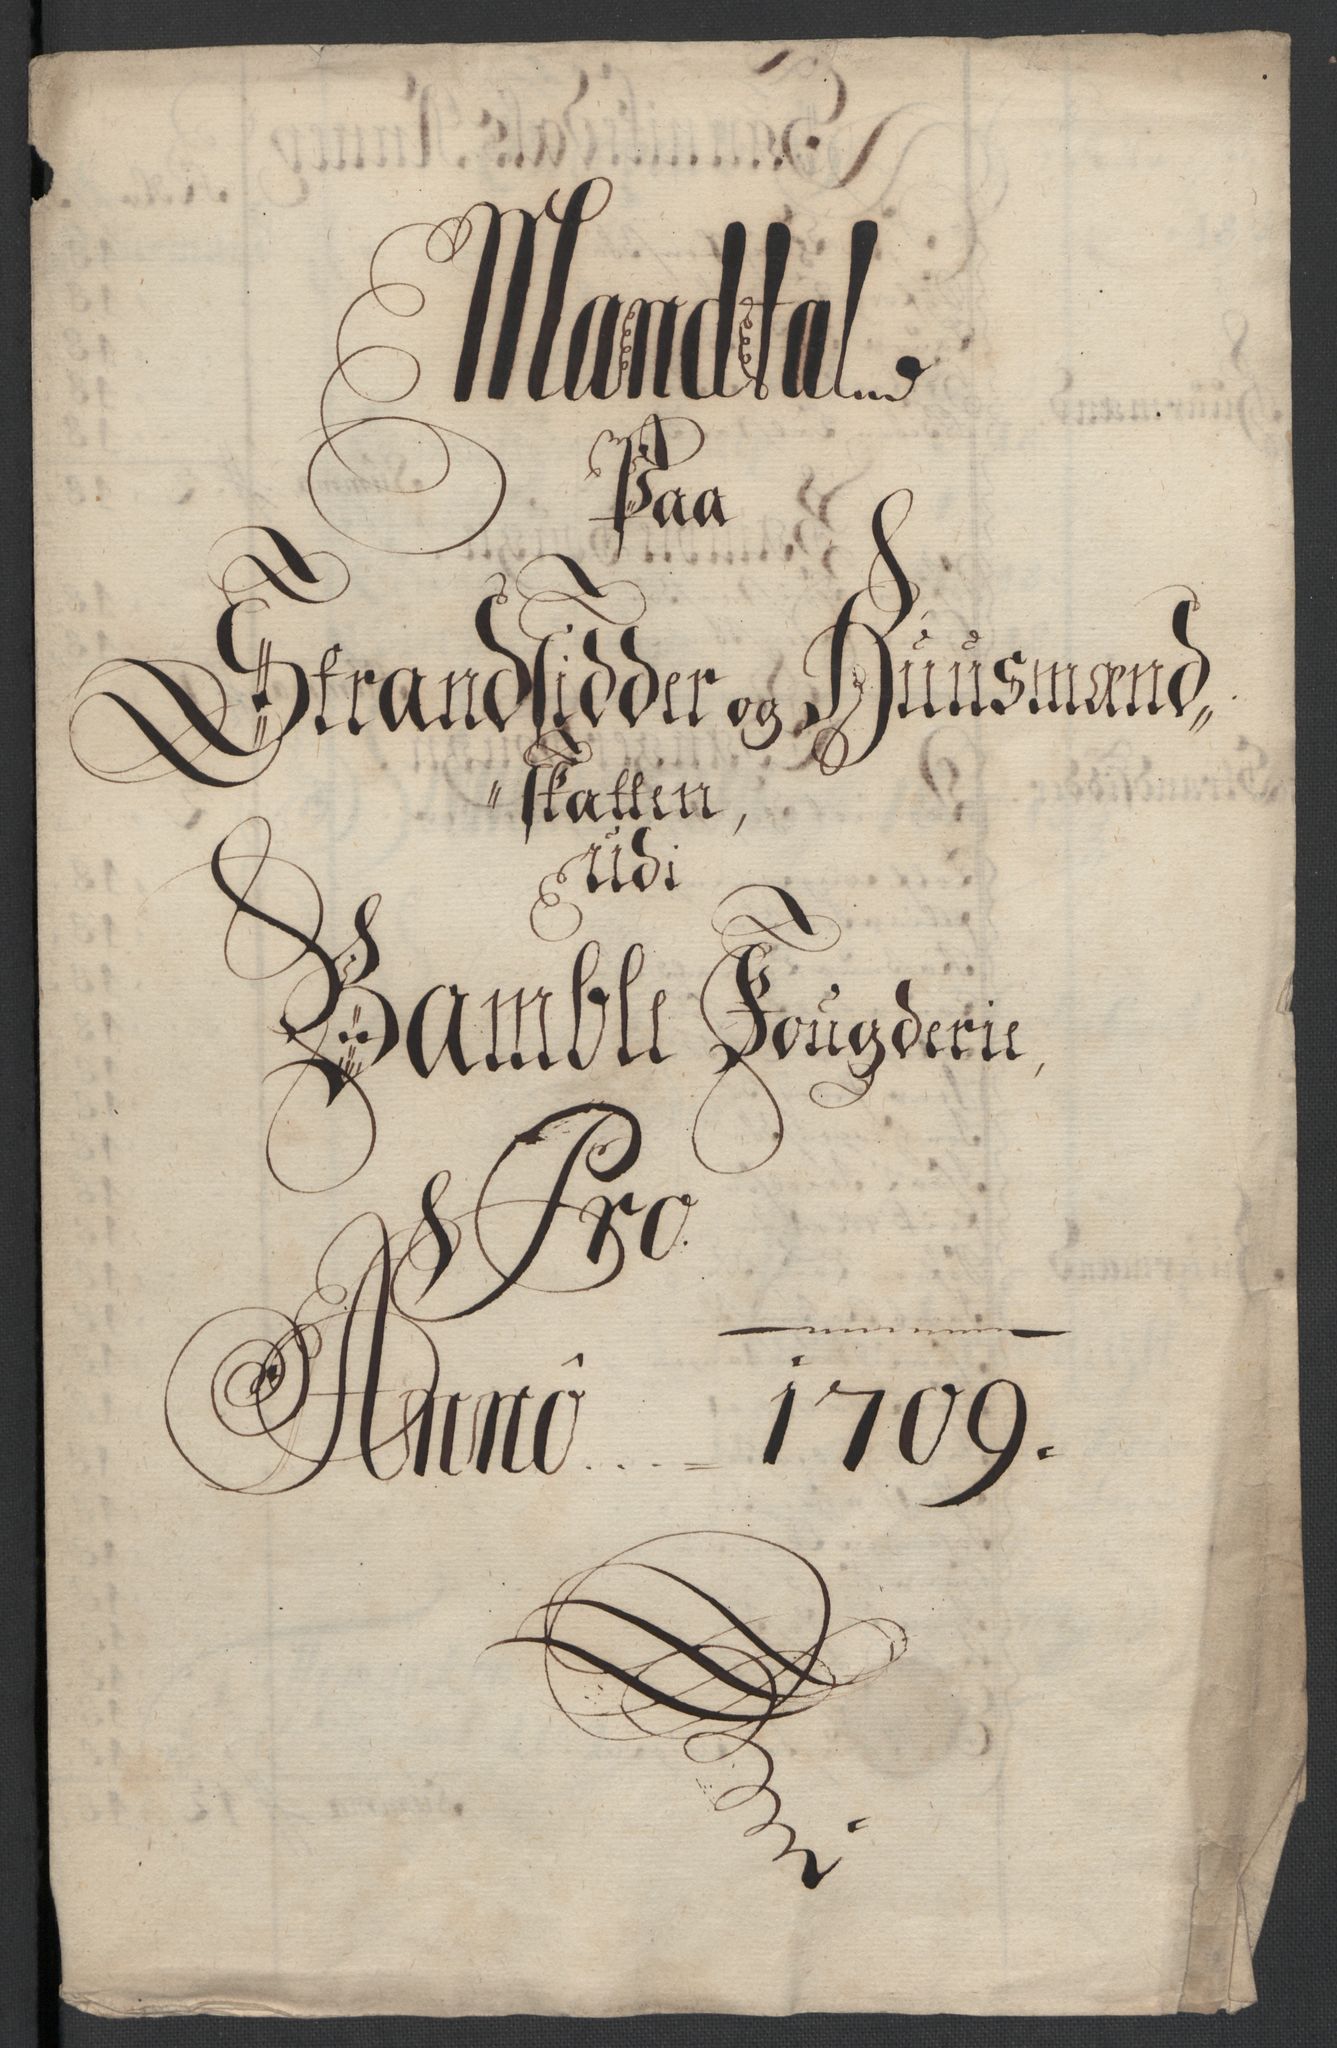 Mandtal
Paa
Strandsidder og Huusmænd„
„skatten,
udi
Bamble Fougderie,
Pro.
Anno ... = 1709.